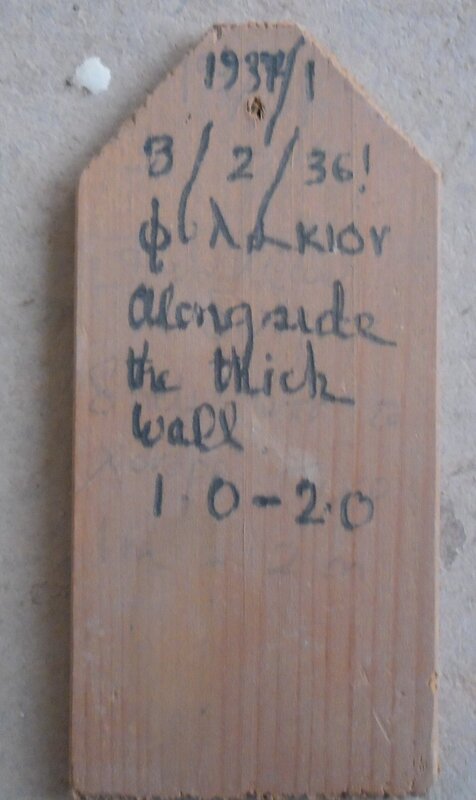 1937/1
3/2/36!
φυλακιον
alongside
the thick
wall
1.0-2.0